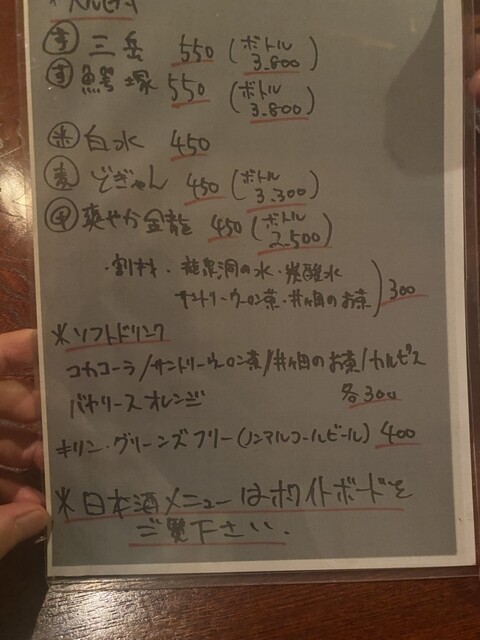 三岳 550 (ボトル 3.800)
塚 550 (ボトル 3.800)
米 白水 450
麦 どぎゃん 450 (ボトル 3.300)
甲 爽やか金龍 450 (ボトル 2.500)
・割材・龍泉洞の水・炭酸水
サントリーウーロン茶・井ヶ田のお茶) 300
*ソフトドリンク
コカコーラ/サントリーウーロン茶/井ヶ田のお茶/カルピス
バヤリースオレンジ 各300
キリン・グリーンズフリー(ノンアルコールビール) 400
*日本酒メニューはホワイトボードを
ご覧下さい.